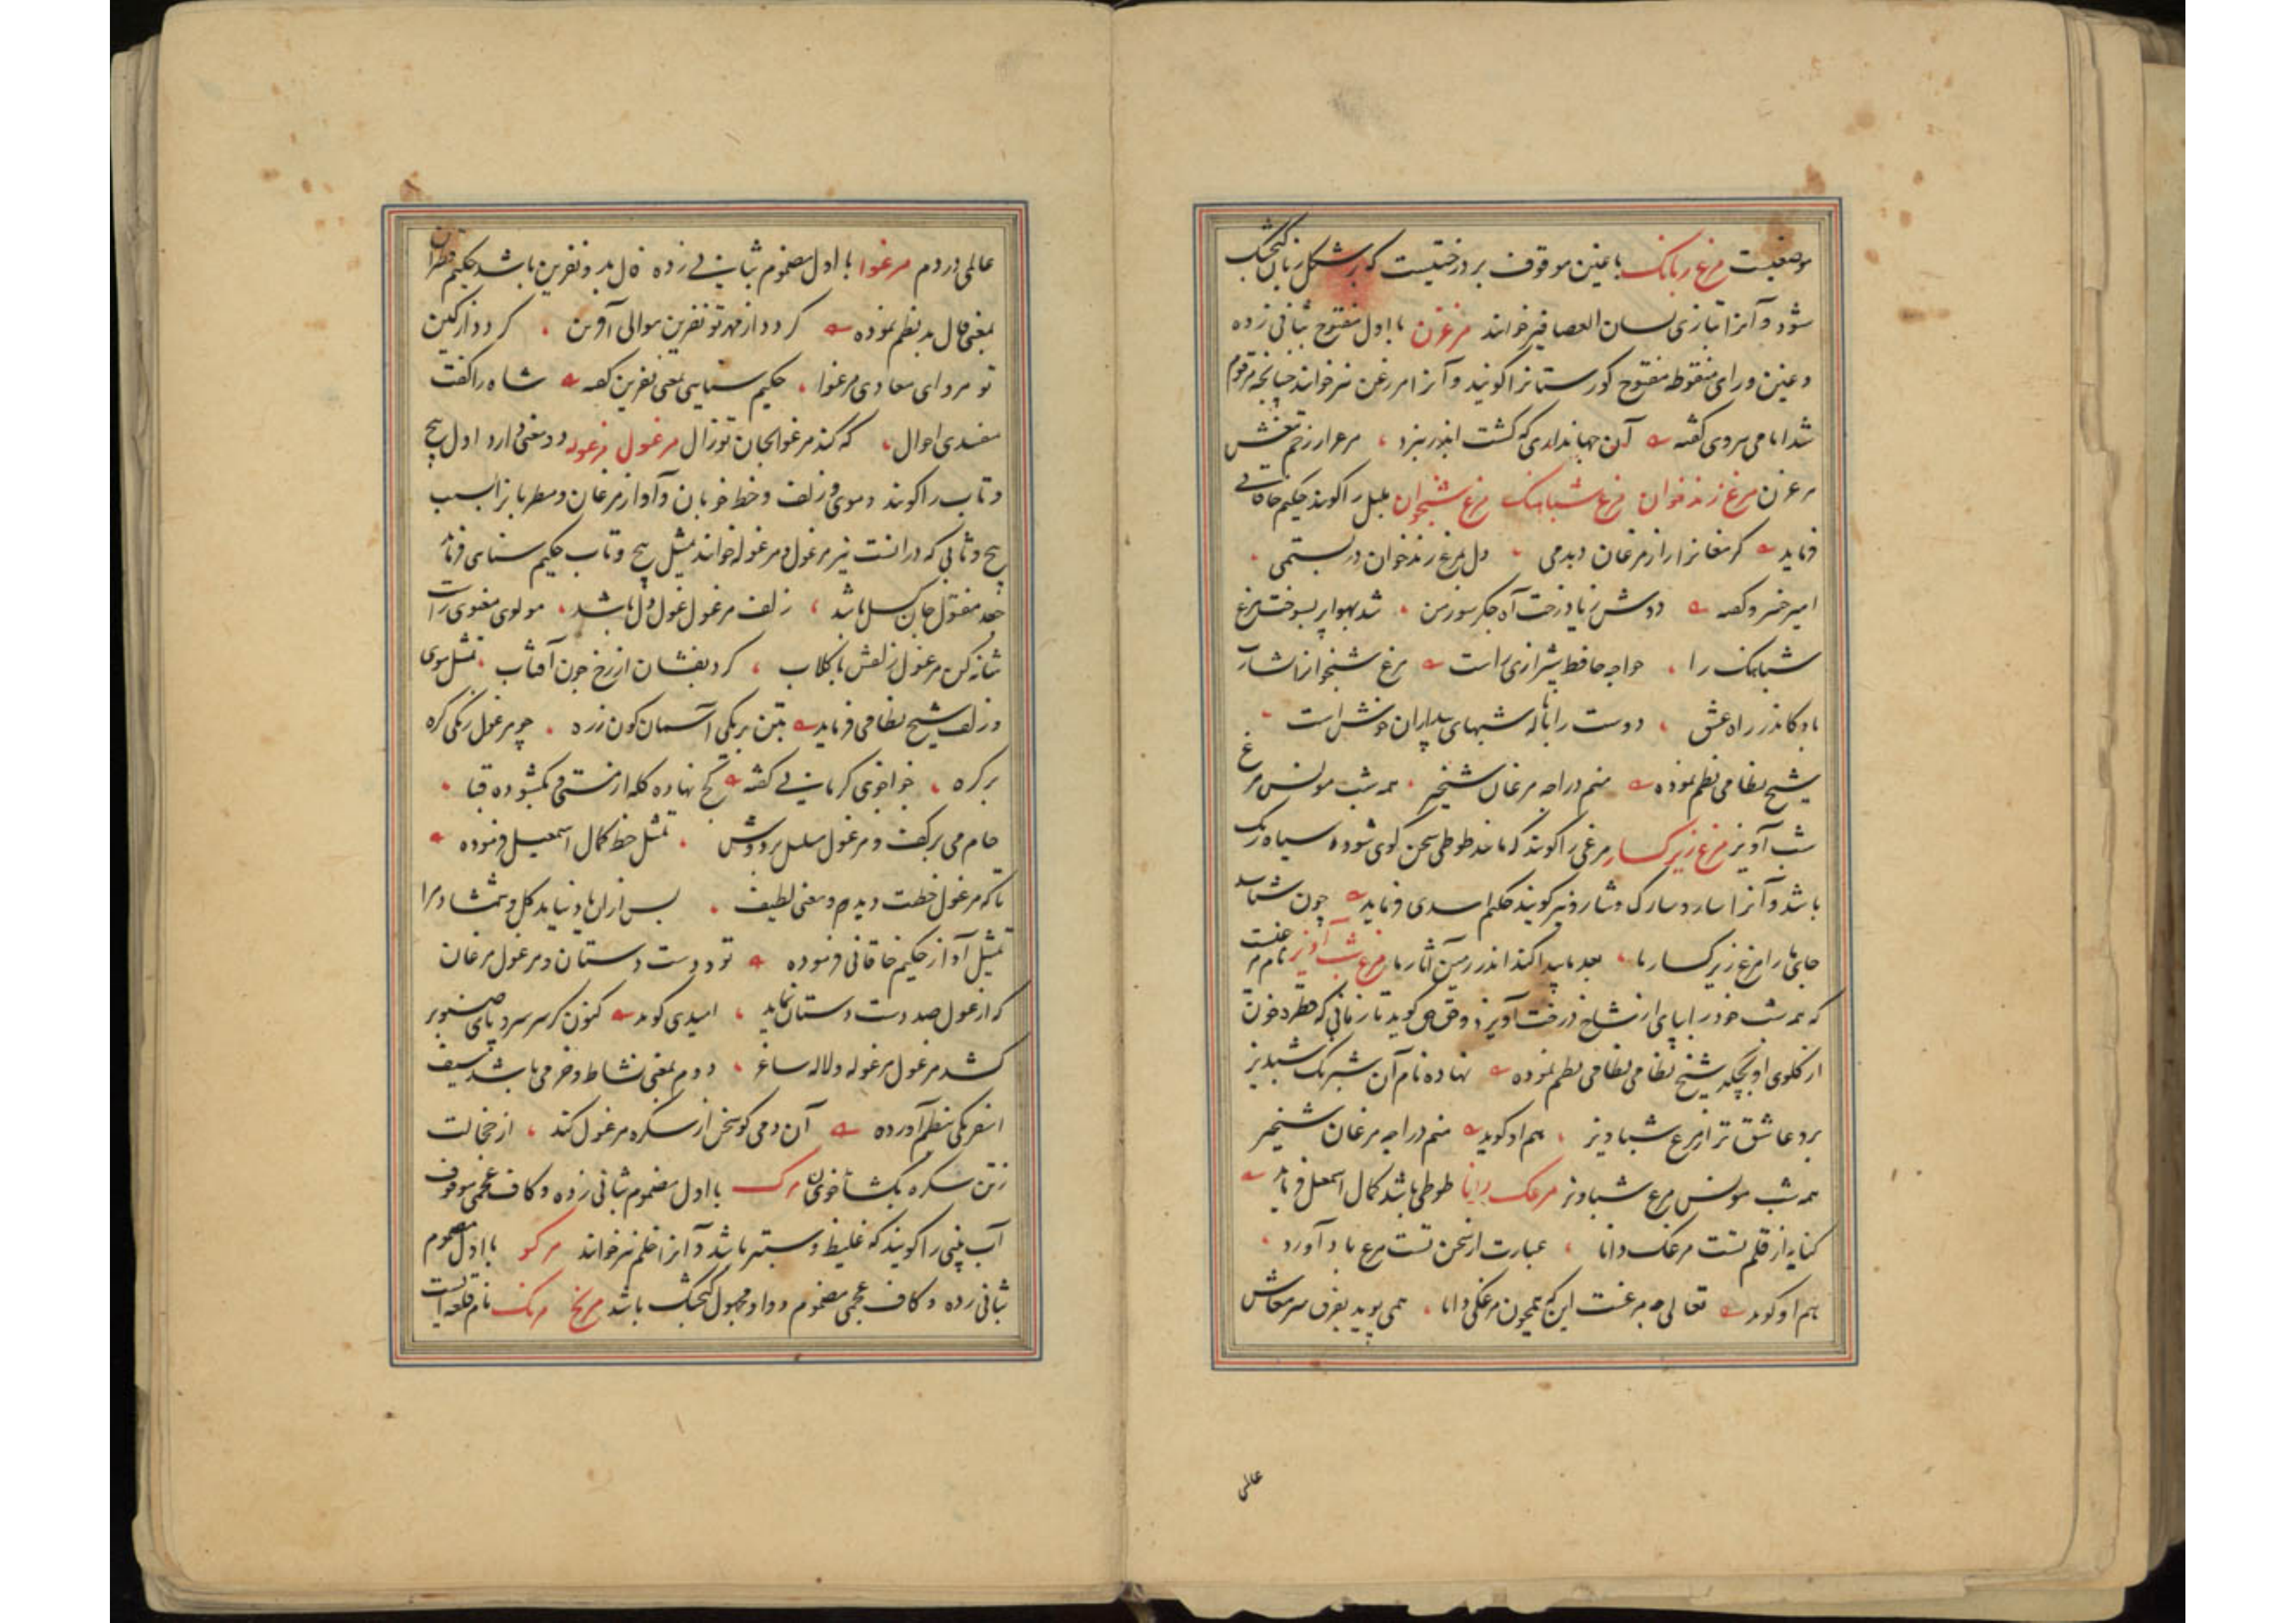 موضعیست مرغ زبانک باغین موقوف بر درختیست که بر شکل زبان کنجشک
شود و آنرا بتازی لسان العصافیر خوانند مرغزن با اول مفتوح بثانی زده
و غین و رای منقوطه مفتوح کورستانرا کویند و آنرا مرزغن نیز خوانند چنانچه مرقوم
شد امامی هروی کفته آن جهانداری که کشت اندر نبرد مرغزار از زخم تیغش
مرغزن مرغ زندخوان مرغ شباهنک مرغ شبخوان بلبل را کویند حکیم خاقانی
فرماید کر مغانرا راز مرغان دیدمی دل بمرغ زندخوان در بستمی
امیر خسرو کفته دوش ز یاد رخت آه جکر سوز من شد بهوا پر بسوخت مرغ
شباهنک را خواجه حافظ شیرازی راست مرغ شبخوانرا بشارت
باد کاندر راه عشق دوست را با ناله شبهای بیداران خوش است
شیخ نظامی نظم نموده منم در اجه مرغان شبخیز همه شب مونس مرغ
شب آویز مرغ زیرکسار مرغی را کویند که مانند طوطی سخن کوی شود و سیاه رنک
باشد و آنرا سار و سارک و شار و نیز کویند حکیم اسدی فرماید چون
جای ها را مرغ زیرکسار ما بعد ما پیدا کند اندر زمین آثار ما مرغ شب آویز نام مرغیست
که همه شب خود را بپای از شاخ درخت آویزد و حق حق کوید تا زمانی که قطره خون
از کلوی او بچکد شیخ نظامی نظامی نظم نموده نهاده نام آن شبرنک شبدیز
برو عاشق تر از مرغ شباویز هم او کوید منم در اجه مرغان شبخیز
همه شب مونس مرغ شباویز مرغک دانا طوطی باشد کمال اسمعیل فرماید
کنایه از قلم تست مرغک دانا عبارت از سخن تست مرغ باد آورد
هم او کوید تعالی چه مرغست این که همچون مرغکی دانا همی پوید بفرق سر معاش
عالمی
عالمی در دم مرغوا با اول مضموم بثانی زده فال بد و نفرین باشد حکیم قطران
بمعنی فال بد نظم نموده کردد از مهر تو نفرین موالی آفرین کردد از کین
تو مروای معادی مرغوا حکیم سنایی بمعنی نفرین کفته شاه را کفت
مفسدی احوال که کند مرغوا بجان تو زال مرغول مرغوله دو معنی دارد اول پیچ
و تاب را کویند و موی و زلف و خط خوبان و آواز مرغان و مطربانرا بسبب
پیچ و تابی که درانست نیز مرغول و مرغوله خوانند تمثیل پیچ و تاب حکیم سنایی فرماید
جعد مفتول جان کسل باشد زلف مرغول غول دل باشد مولوی معنوی راست
شانه کن مرغول زلفش با کلاب کرد بفشان از رخ چون آفتاب تمثیل موی
و زلف شیخ نظامی فرماید بتن بر یکی آسمان کون زره چو مرغول زنکی کره
بر کره خواجوی کرمانی کفته کج نهاده کله از مستی و بکشوده قبا
جام می بر کف و مرغول مسلسل بر دوش تمثیل خط کمال اسمعیل فرموده
تا که مرغول خطت دیدم و معنی لطیف بس ازان یاد نیاید کل و شمشاد مرا
تمثیل آواز حکیم خاقانی فرموده تو و دست دستان و مرغول مرغان
که از غول صد دست دستان نماید امیدی کوید کنون کز سر سرو پای صنوبر
کشد مرغول مرغوله و لاله ساغر دوم بمعنی نشاط و خرمی باشد سیف
اسفرنکی بنظم آورده آن دمی کو سخن از سکره مرغول کند از خجالت
مرک با اول مضموم بثانی زده و کاف عجمی موقوف
آب بینی را کویند که غلیظ و ستبر باشد و آنرا خلم نیز خوانند مرکو با اول مضموم
بثانی زده و کاف عجمی مضموم و واو مجهول کنجشک باشد مرنج مرنک نام قلعه ایست